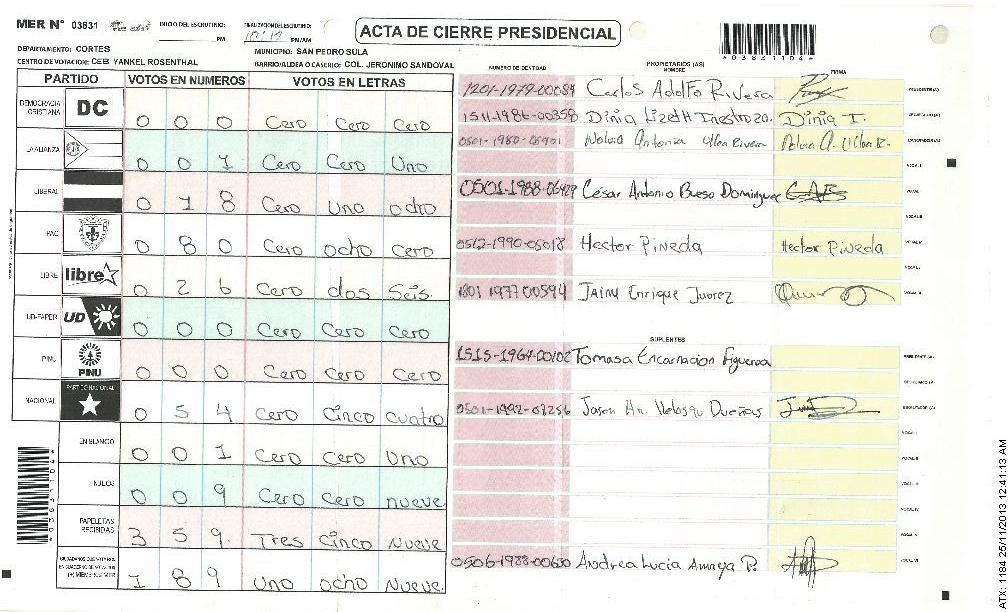 MER N° 03831
INICIO DEL ESCRUTINIO: PM
FINALIZACION DEL ESCRUTINIO: PM/AM
ACTA DE CIERRE PRESIDENCIAL
*03831104*
DEPARTAMENTO: CORTES
MUNICIPIO: SAN PEDRO SULA
CENTRO DE VOTACION: CEB YANKEL ROSENTHAL
BARRIO/ALDEA O CASERIO: COL. JERONIMO SANDOVAL
PARTIDO VOTOS EN NUMEROS VOTOS EN LETRAS
DEMOCRACIA CRISTIANA DC 0 0 0 Cero Cero Cero
LA ALIANZA 0 0 1 Cero Cero Uno
LIBERAL 0 1 8 Cero Uno ocho
PAC 0 8 0 Cero ocho Cero
LIBRE libre 0 2 6 Cero dos Seis
UD-FAPER UD 0 0 0 Cero Cero Cero
PINU PINU 0 0 0 Cero Cero Cero
NACIONAL PARTIDO NACIONAL 0 5 4 Cero Cinco Cuatro
EN BLANCO 0 0 1 Cero Cero Uno
NULOS 0 0 9 Cero Cero nueve
PAPELETAS RECIBIDAS 3 5 9 Tres Cinco Nueve
1 8 9 Uno ocho Nueve
NUMERO DE IDENTIDAD PROPIETARIOS (AS) NOMBRE FIRMA
1201-1979-00084 Carlos Adolfo Rivera PRESIDENTE (A)
1511-1986-00358 Dinia Lizeth Inestroza Dinia I. SECRETARIO (A)
Antonia Rivera ESCRUTADOR (A)
VOCAL I
César Antonio Bueso Dominguez VOCAL II
VOCAL III
0512-1990-05018 Hector Pineda Hector Pineda VOCAL IV
VOCAL V
1801 1977 00594 Jainy Enrique Juarez
SUPLENTES
1515-1964-00102 Tomasa Encarnacion Figueroa PRESIDENTE (A)
SECRETARIO (A)
0501-1992-08256 Jason ESCRUTADOR (A)
0506-1988-00630 Andrea Lucia Amaya P.
*03831104*
ATX: 1184 25/11/2013 12:41:13 AM